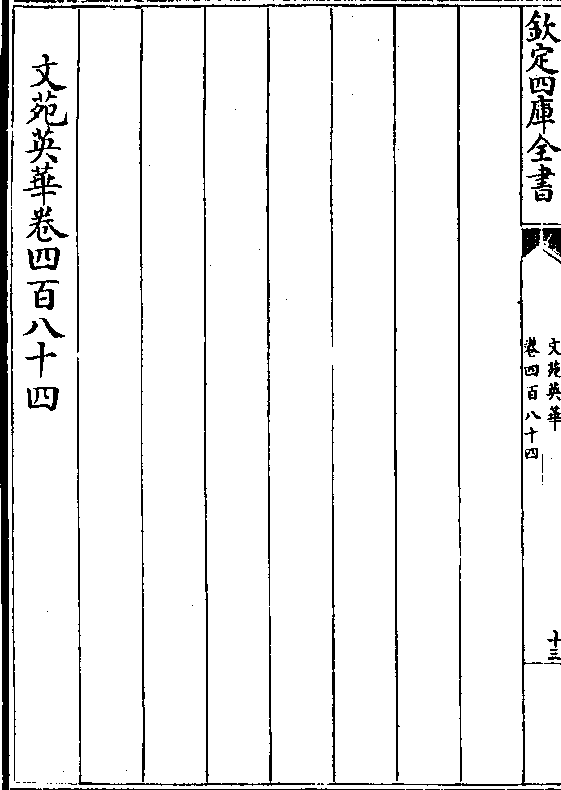 欽定四庫全書
文苑英華
卷四百八十四
十三
文苑英華卷四百八十四